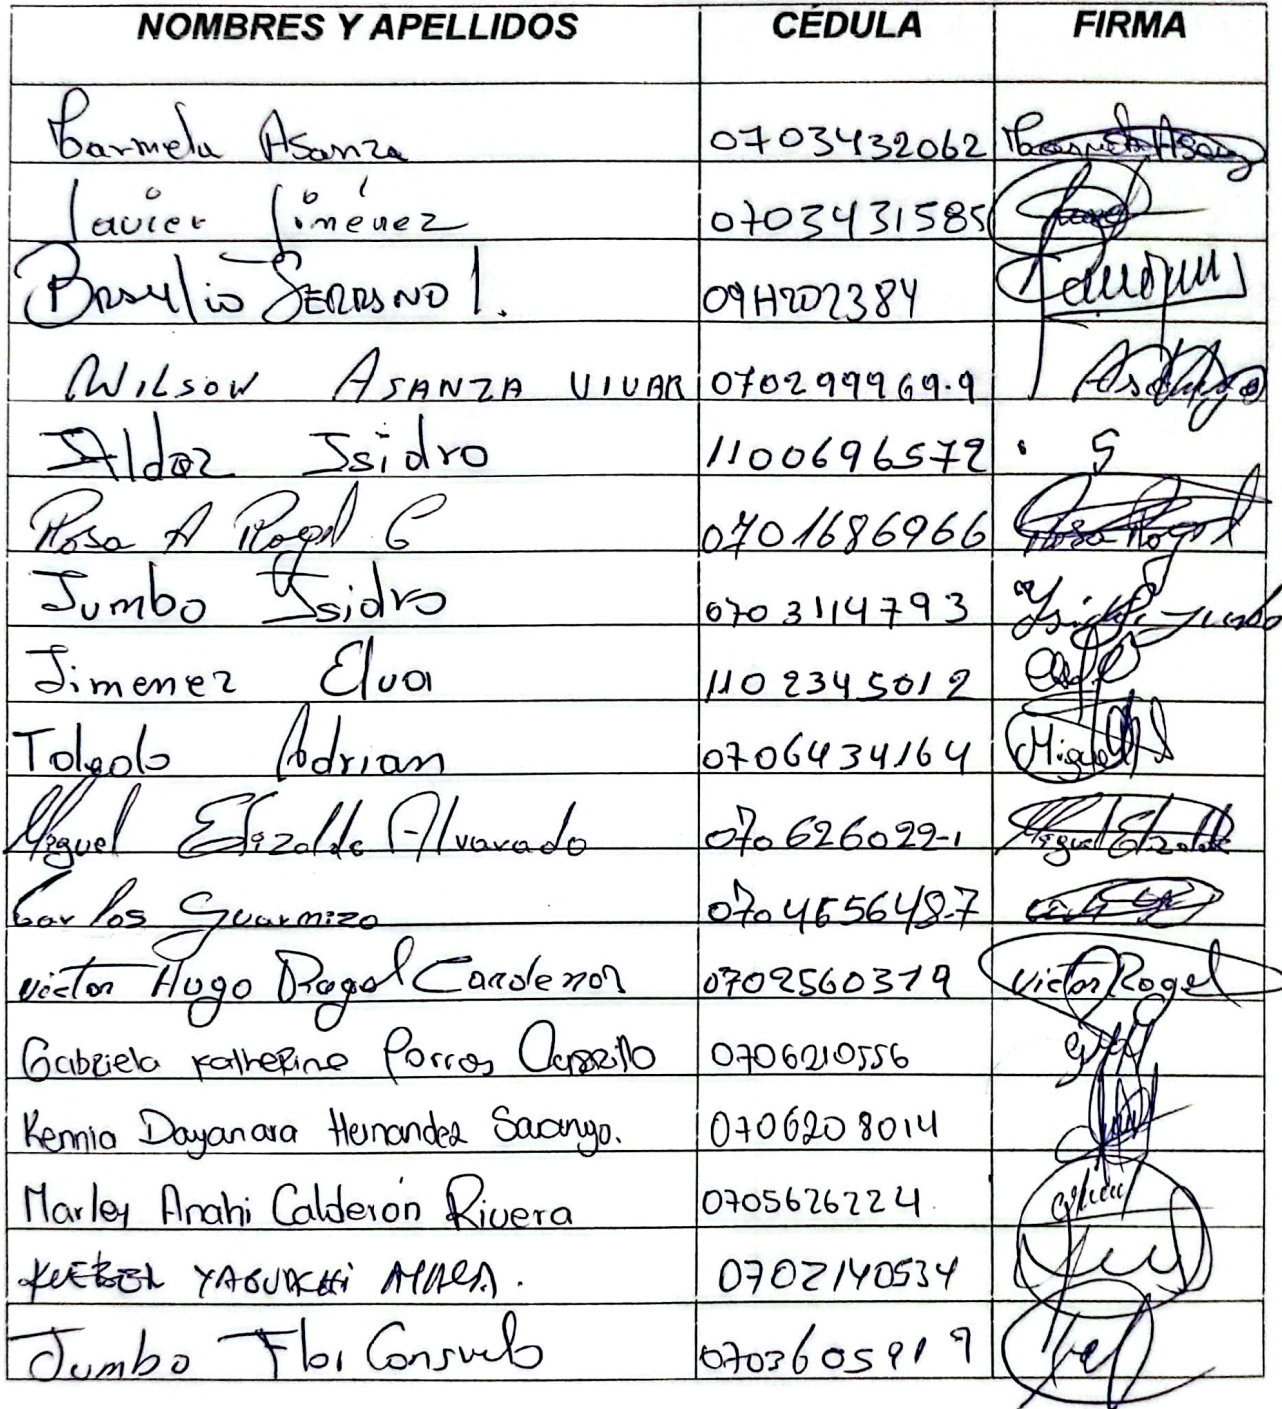 NOMBRES Y APELLIDOS CÉDULA FIRMA
Carmela Asanza 0703432062 Carmela Asanza
Javier Jiménez 0703431585
Basilio SERRANO I. 0911202384
WILSON ASANZA VIVAR 070299969-9 Asanza
Aldaz Isidro 1100696572
Rosa A Rogel C 0701686966 Rosa Rogel
Jumbo Ysidro 0703114793 Ysidro Jumbo
Jimenez Elva 1102345012
Toledo Adrian 0706434164 Miguel
Miguel Elizalde Alvarado 070626022-1 Miguel Elizalde
Carlos Guarmizo 070465648-7
Victor Hugo Rogel Cardenas 0702560319 Victor Rogel
Gabriela Katherine Porras Carrillo 0706210556
Kennia Dayanara Hernandez Sarango. 0706208014
Marley Anahi Calderón Rivera 0705626224
KLEBER YAGUACHI AMALA. 0702140534
Jumbo Flor Consuelo 0703605919